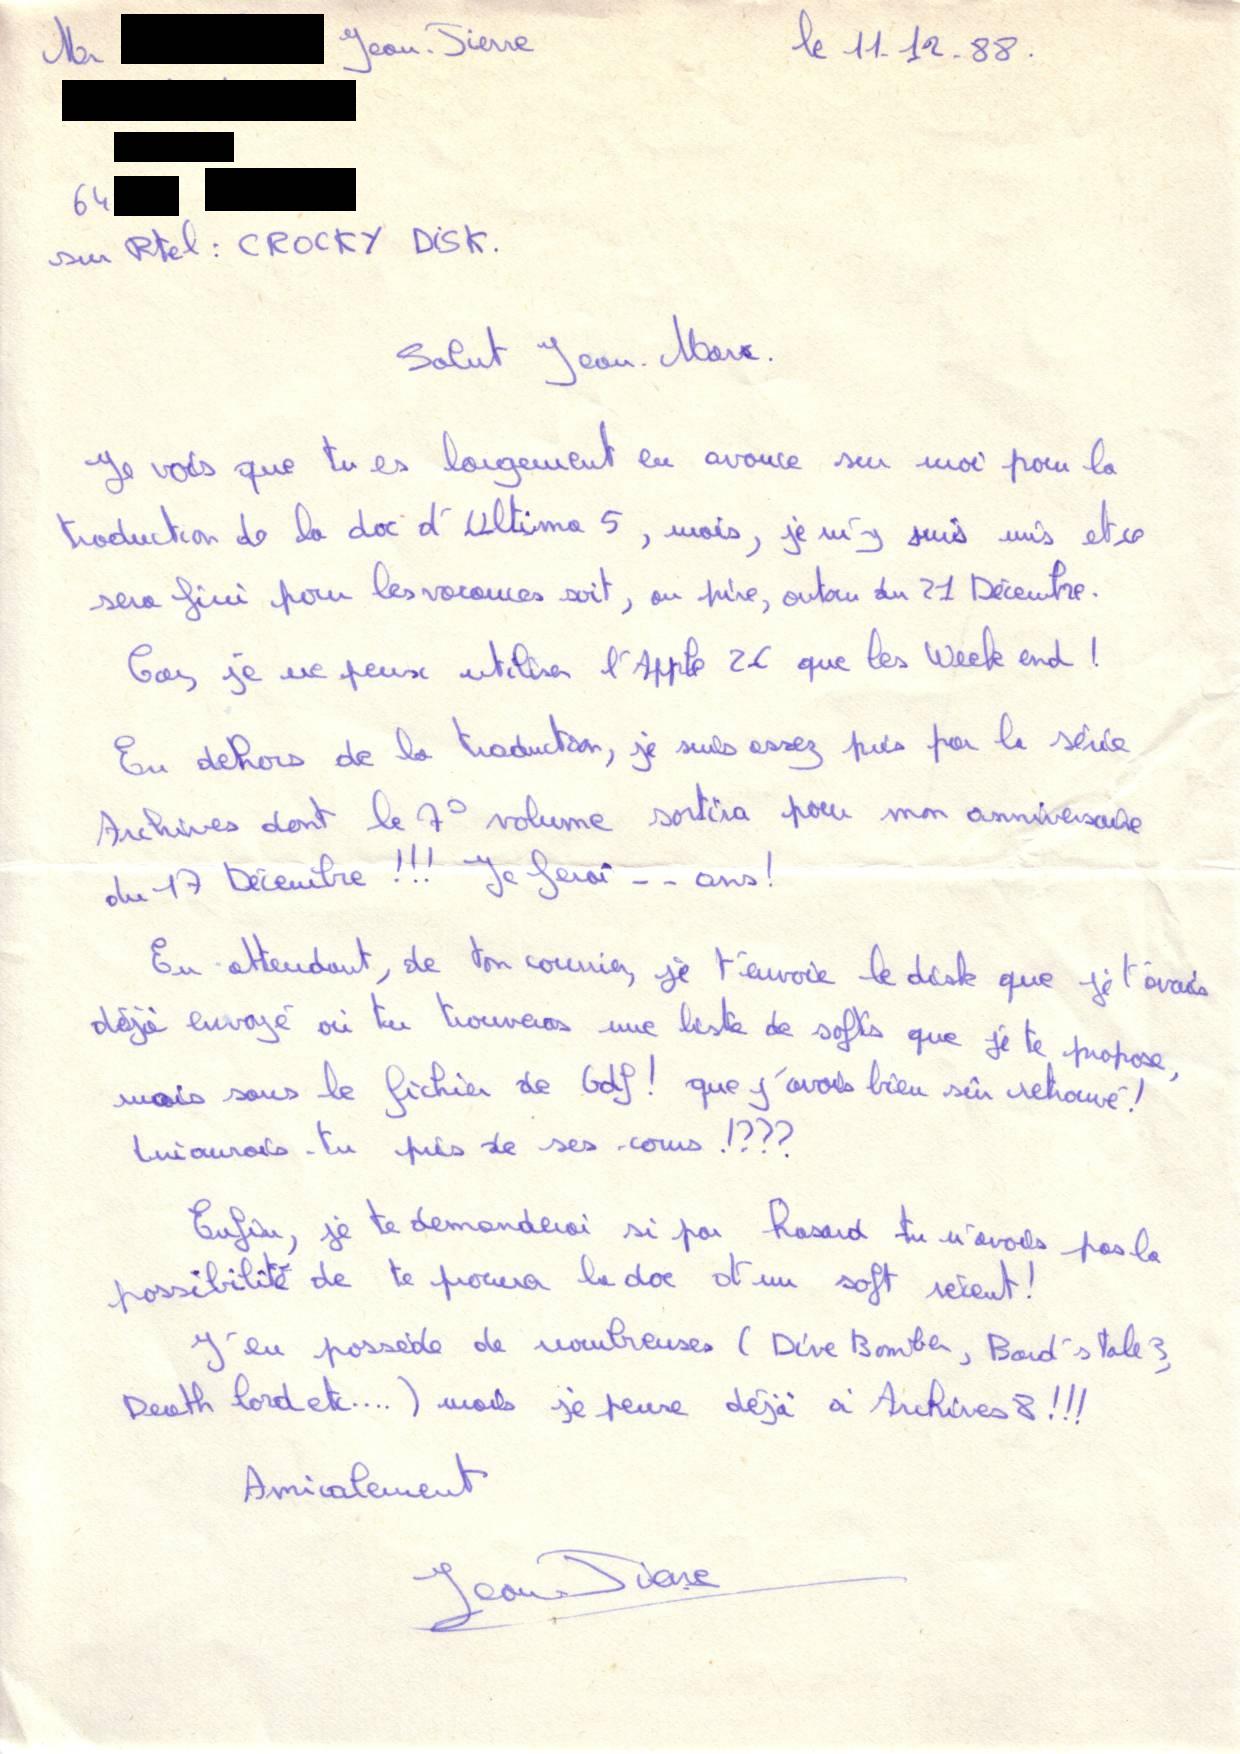 Mr Jean-Pierre le 11-12-88.
64
sur Rtel : CROCKY DISK.
Salut Jean-Marc.
Je vois que tu es largement en avance sur moi pour la
traduction de la doc d'Ultima 5, mais, je m'y suis mis et ce
sera fini pour les vacances soit, au pire, autour du 21 Décembre.
Car, je ne peux utiliser l'Apple 2C que les Week end !
En dehors de la traduction, je suis assez pris par la série
Archives dont le 7° volume sortira pour mon anniversaire
du 17 Décembre !!! Je ferai -- ans !
En attendant, de ton courrier, je t'envoie le disk que je t'avais
déjà envoyé où tu trouveras une liste de softs que je te propose,
mais sous le fichier de Gdf ! que j'avais bien sûr retrouvé !
Lui aurais-tu pris de ses cours !???
Enfin, je te demanderai si par hasard tu n'avais pas la
possibilité de te procurer la doc d'un soft récent !
J'en possède de nombreuses ( Dive Bomber, Bard's tale 3,
Death lord etc.... ) mais je pense déjà à Archives 8 !!!
Amicalement
Jean-Pierre